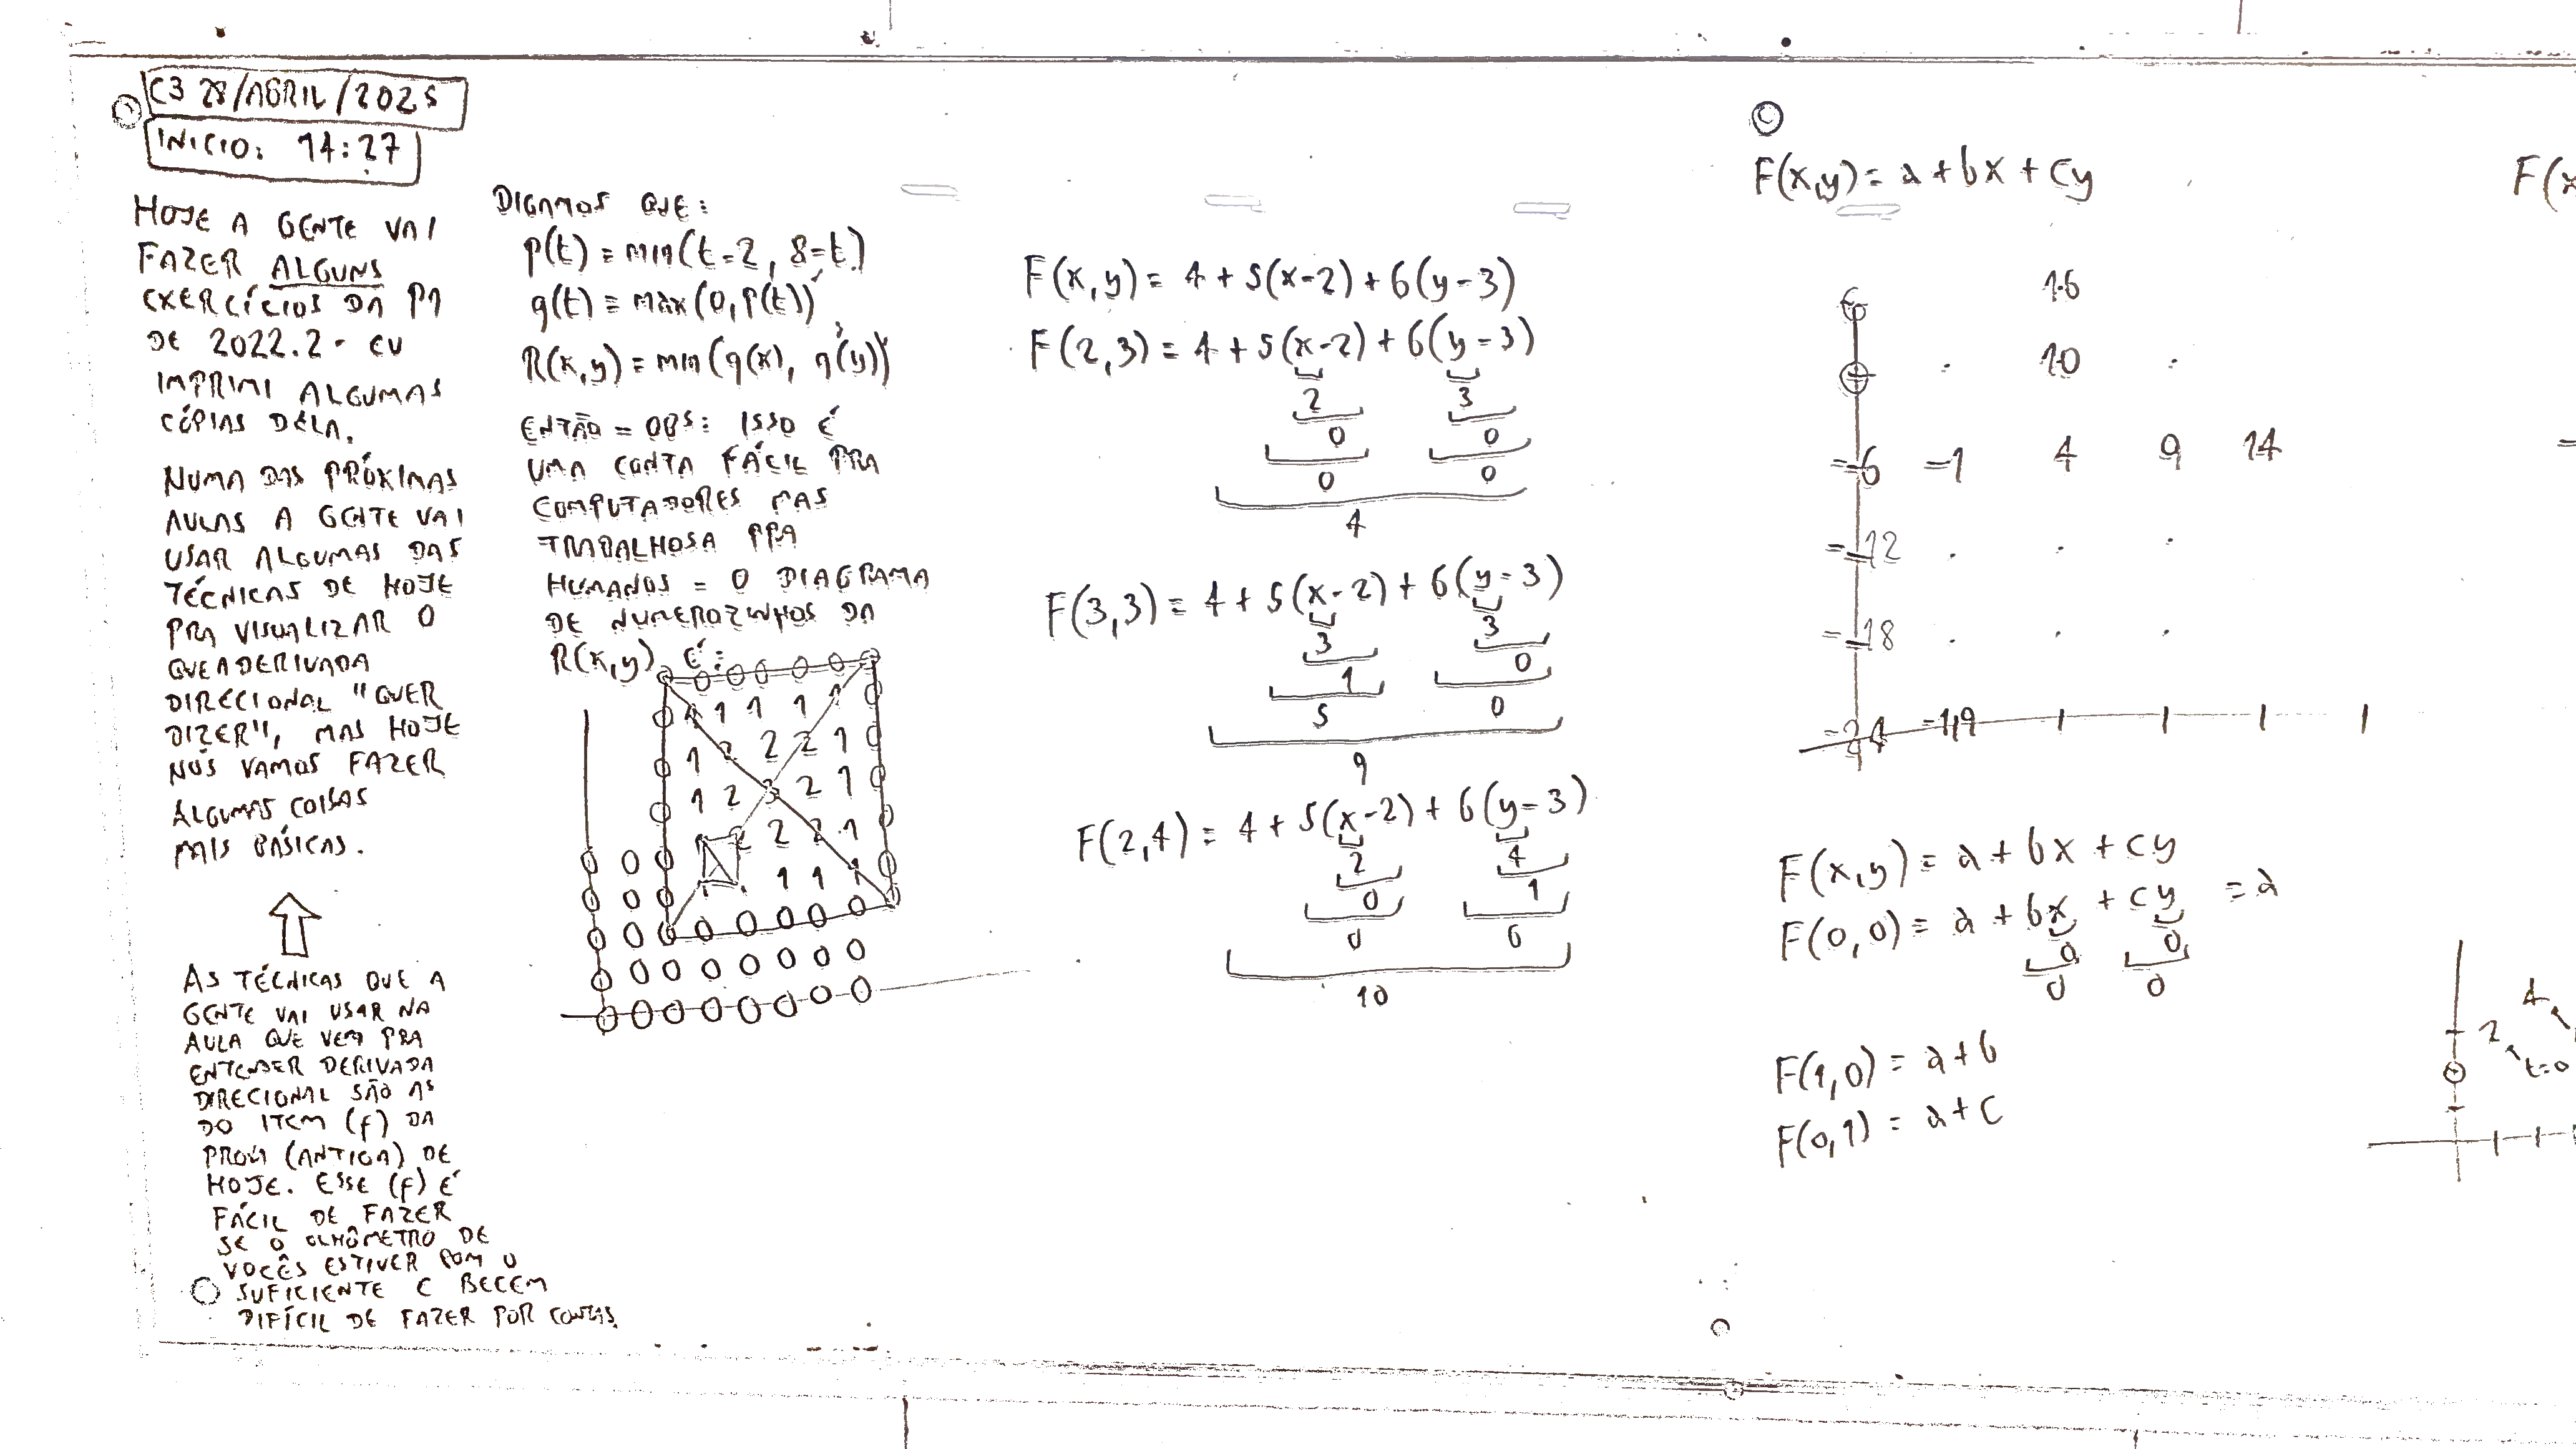 C3 28/ABRIL/2025
INICIO: 14:27
HOJE A GENTE VAI
FAZER ALGUNS
EXERCÍCIOS DA P1
DE 2022.2 - EU
IMPRIMI ALGUMAS
CÓPIAS DELA.
NUMA DAS PRÓXIMAS
AULAS A GENTE VAI
USAR ALGUMAS DAS
TÉCNICAS DE HOJE
PRA VISUALIZAR O
QUE A DERIVADA
DIRECIONAL "QUER
DIZER", MAS HOJE
NÓS VAMOS FAZER
ALGUMAS COISAS
MAIS BÁSICAS.
⇧
AS TÉCNICAS QUE A
GENTE VAI USAR NA
AULA QUE VEM PRA
ENTENDER DERIVADA
DIRECIONAL SÃO AS
DO ITEM (f) DA
PROVA (ANTIGA) DE
HOJE. ESSE (f) É
FÁCIL DE FAZER
SE O OLHÔMETRO DE
VOCÊS ESTIVER BOM O
SUFICIENTE E BEEEM
DIFÍCIL DE FAZER POR CONTAS.
DIGAMOS QUE:
p(t) = min(t-2, 8-t)
q(t) = max(0, p(t))
R(x,y) = min(q(x), q(y))
ENTÃO - OBS: ISSO É
UMA CONTA FÁCIL PRA
COMPUTADORES MAS
TRABALHOSA PRA
HUMANOS - O DIAGRAMA
DE NUMEROZINHOS DA
R(x,y) É:
0 0 0 0 0
0 1 1 1 1 1 0
0 1 2 2 2 1 0
0 1 2 3 2 1 0
2 2 2 1 0
0 0 0 1 1 1 0
0 0 0
0 0 0 0 0 0 0 0
0 0 0 0 0 0 0 0
0 0 0 0 0 0 0 0
F(x,y) = 4 + 5(x-2) + 6(y-3)
F(2,3) = 4 + 5(x-2) + 6(y-3)
2 3
0 0
0 0
4
F(3,3) = 4 + 5(x-2) + 6(y-3)
3 3
1 0
5 0
9
F(2,4) = 4 + 5(x-2) + 6(y-3)
2 4
0 1
0 6
10
F(x,y) = a + bx + cy
16
10
-6 -1 4 9 14
-12
-18
-24 -19
F(x,y) = a + bx + cy
F(0,0) = a + bx + cy = a
0 0
0 0
F(1,0) = a + b
F(0,1) = a + c
F(x
4
2
t=0